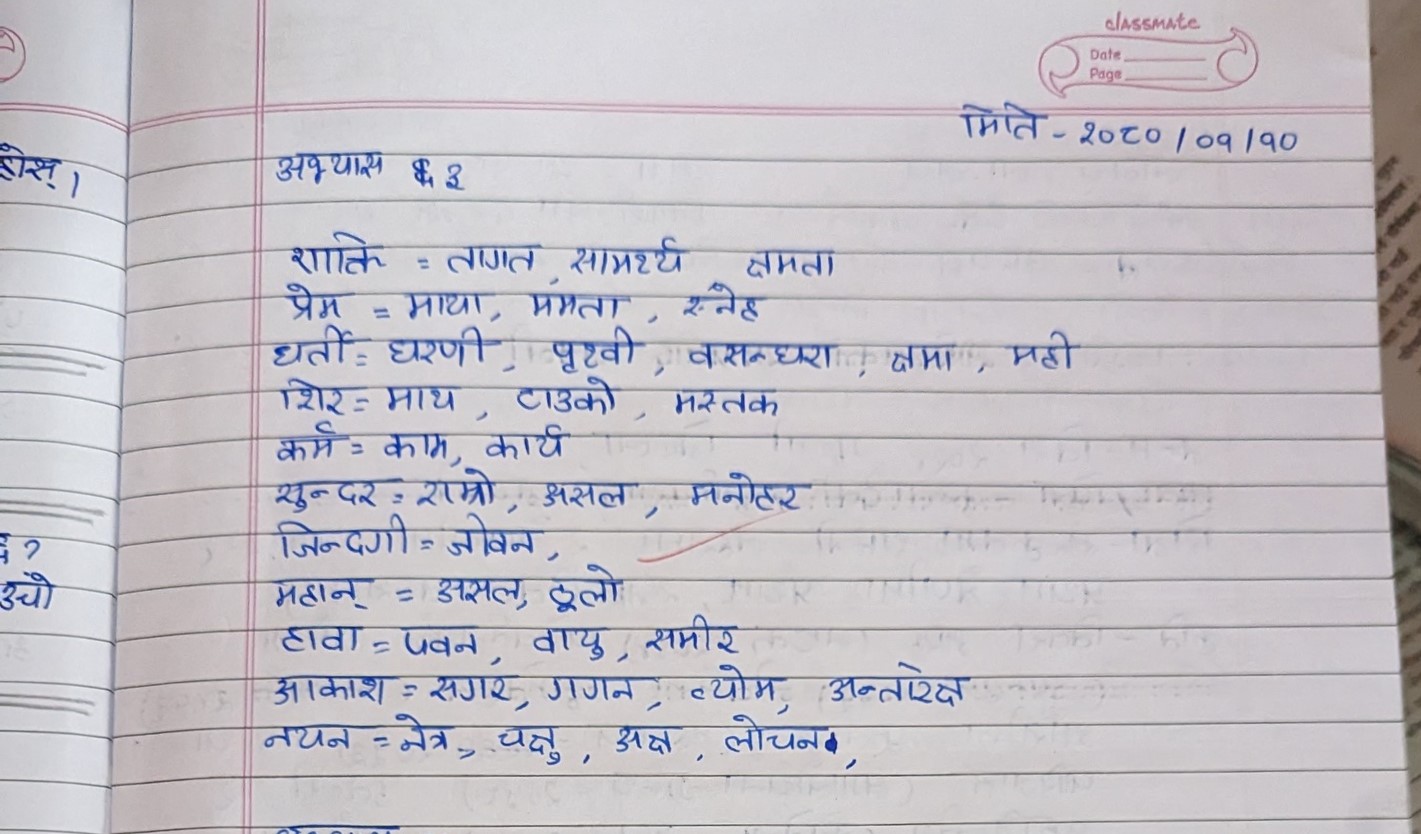 classmate
Date
Page
मिति - २०८०/०१/१०
होस्।
अभ्यास ३
शक्ति = तागत, सामर्थ्य क्षमता
प्रेम = माया, ममता, स्नेह
धर्ती = धरणी, पृथ्वी, वसन्धरा, क्षमा, मही
शिर = माथ, टाउको, मस्तक
कर्म = काम, कार्य
सुन्दर = राम्रो, असल, मनोहर
जिन्दगी = जीवन,
महान् = असल, ठूलो
हावा = पवन, वायु, समीर
आकाश = सगर, गगन, व्योम, अन्तरिक्ष
नयन = नेत्र, चक्षु, अक्ष, लोचन,